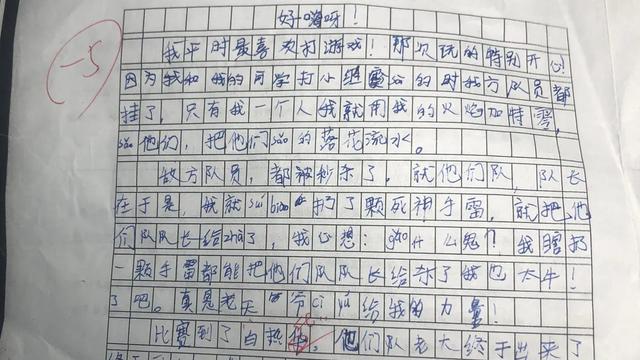 -5
好嗨呀！
我平时最喜欢打游戏！那次玩的特别开心！
因为我和我的同学打小组赛的时我方队员都
挂了，只有我一个人我就用我的火焰加特雷，
sǎo他们，把他们sǎo的落花流水。
敌方队员，都被秒杀了，就他们队，队长
在于是，我就suí biàn扔了颗死神手雷，就把他
们队队长给zhà了，我心想：gǎo什么鬼？我瞎扔
一颗手雷都能把他们队队长给杀了我也太牛！
了吧。真是老天爷cì yǔ给我的力量！
比赛到了白热化，他们队老大终于出来了